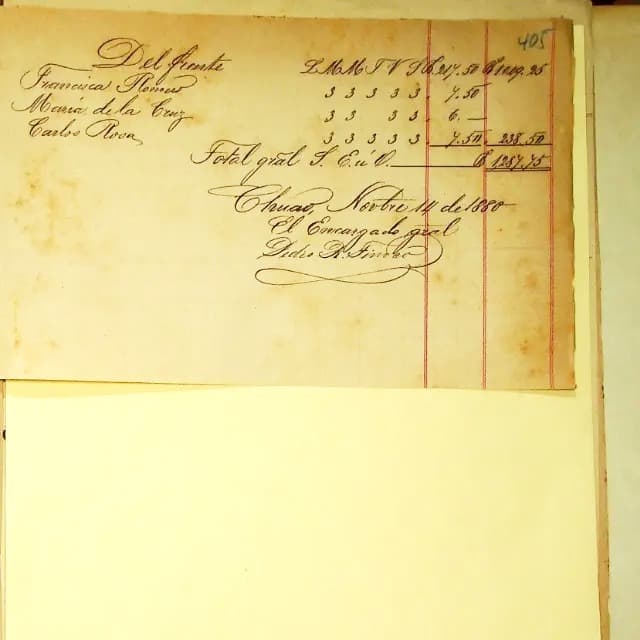 405
Del frente L M M J V S $ 217.50 $ 1049.25
Francisca Romero 3 3 3 3 3 . 7.50
María de la Cruz 3 3 3 3 . 6. —
Carlos Rosa 3 3 3 3 3 . 7.50 . 238.50
Total gral S. E. ú O. $ 1287.75
Chuao, Novbre 14 de 1880
El Encargado gral
Pedro R.